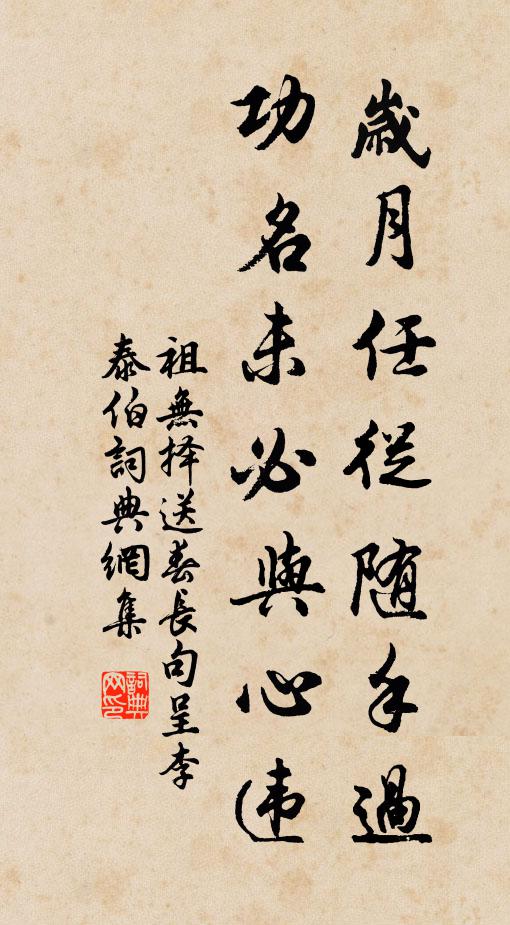 歲月任從随手過
功名未必與心违
祖無择送春長句呈李
泰伯詞典網集
詞典网印